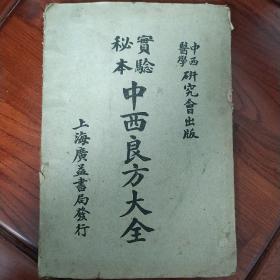 中西醫學研究會出版
實驗秘本
中西良方大全
上海廣益書局發行